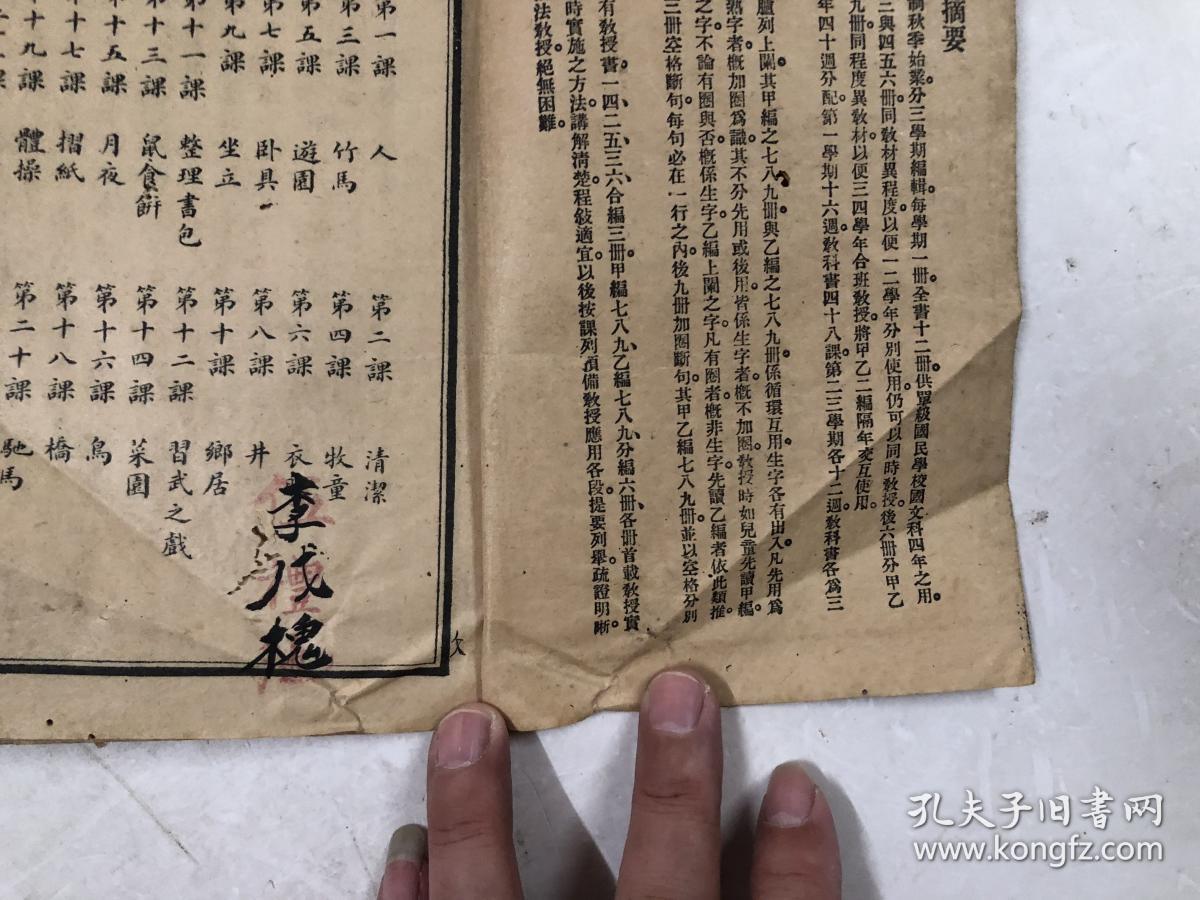 摘要
制秋季始業。分三學期編輯。每學期一冊。全書十二冊。供單級國民學校國文科四年之用。
三與四五六冊同教材異程度。以便一二學年分別使用。仍可以同時教授。後六冊分甲乙
九冊同程度異教材。以便三四學年合班教授。將甲乙二編隔年交互使用。
年四十週分配。第一學期十六週。教科書四十八課。第二三學期各十二週。教科書各爲三
臚列上闌。其甲編之七八九冊。與乙編之七八九冊。係循環互用。生字各有出入。凡先用爲
熟字者。槪加圈爲識。其不分先用或後用。皆係生字者。槪不加圈。教授時。如兒童先讀甲編。
之字。不論有圈與否。槪係生字。乙編上闌之字。凡有圈者。槪非生字。先讀乙編者。依此類推。
三冊空格斷句。每句必在一行之內。後九冊加圈斷句。其甲乙編七八九冊。並以空格分別
有教授書。一四、二五、三六、合編三冊。甲編七八九、乙編七八九、分編六冊。各冊首載教授實
時實施之方法。講解清楚。程敍適宜。以後按課列預備教授應用各段。提要列舉。疏證明晰。
法教授。絕無困難。
次
第一課 人 第二課 清潔
第三課 竹馬 第四課 牧童
第五課 遊園 第六課 衣
第七課 卧具 第八課 井
第九課 坐立 第十課 鄉居
第十一課 整理書包 第十二課 習武之戲
第十三課 鼠食餅 第十四課 菜園
第十五課 月夜 第十六課 鳥
第十七課 摺紙 第十八課 橋
第十九課 體操 第二十課 馳馬
李成槐
孔夫子旧书网
www.kongfz.com